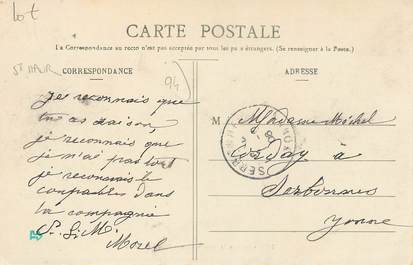 Lot
CARTE POSTALE
La Correspondance au recto n'est pas acceptée par tous les pays étrangers. (Se renseigner à la Poste.)
St MAUR
94
CORRESPONDANCE
ADRESSE
Je reconnais que
tu as raison,
je reconnais que
je n'ai pas tort
je reconnais le
coupables dans
la compagnie
Morel
M Madame Michel
à
Serbonnes
Yonne